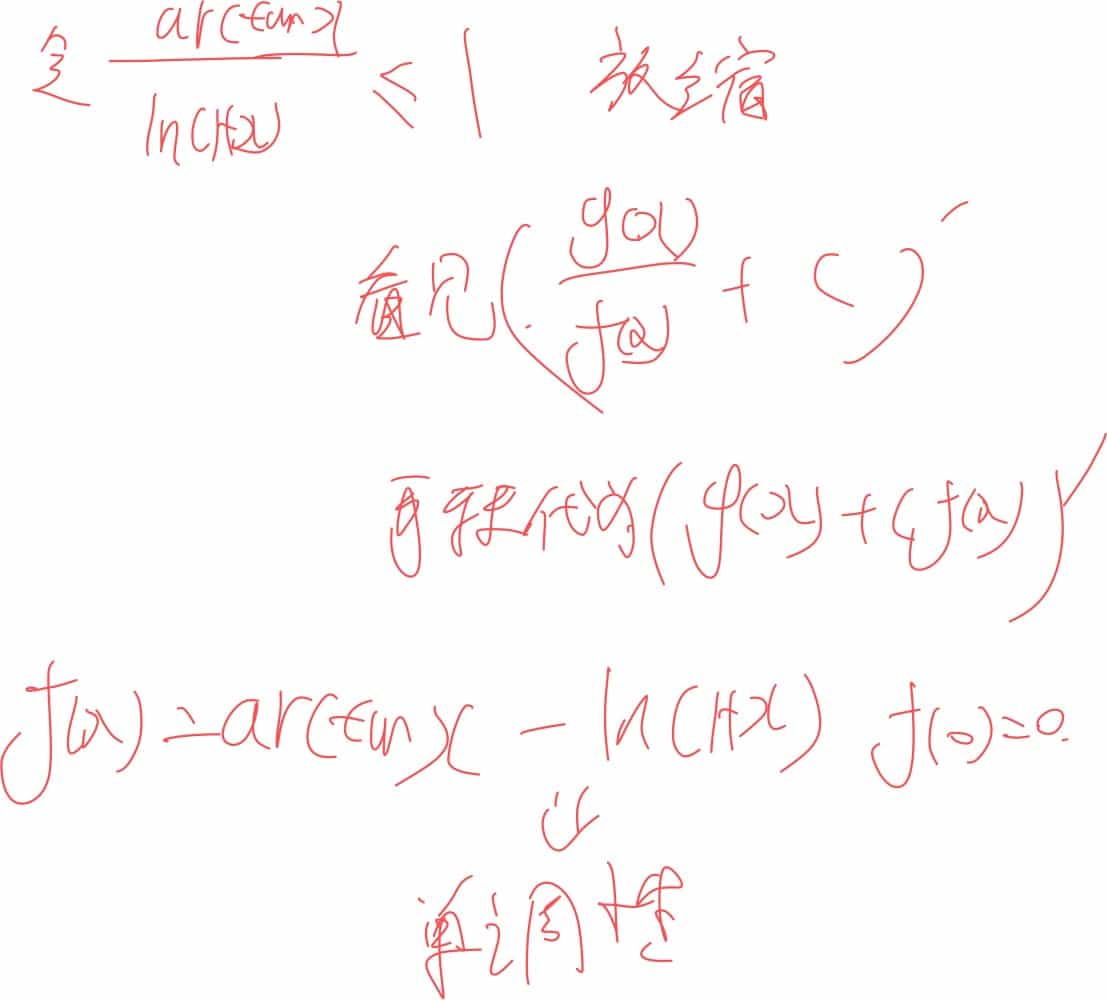 令 arctanx / ln(1+x) ≤ 1 放缩
看见( g(x) / f(x) + C )′
再转代为(g(x)+Cf(x))′
f(x)=arctanx - ln(1+x) f(0)=0.
⇓
单调性